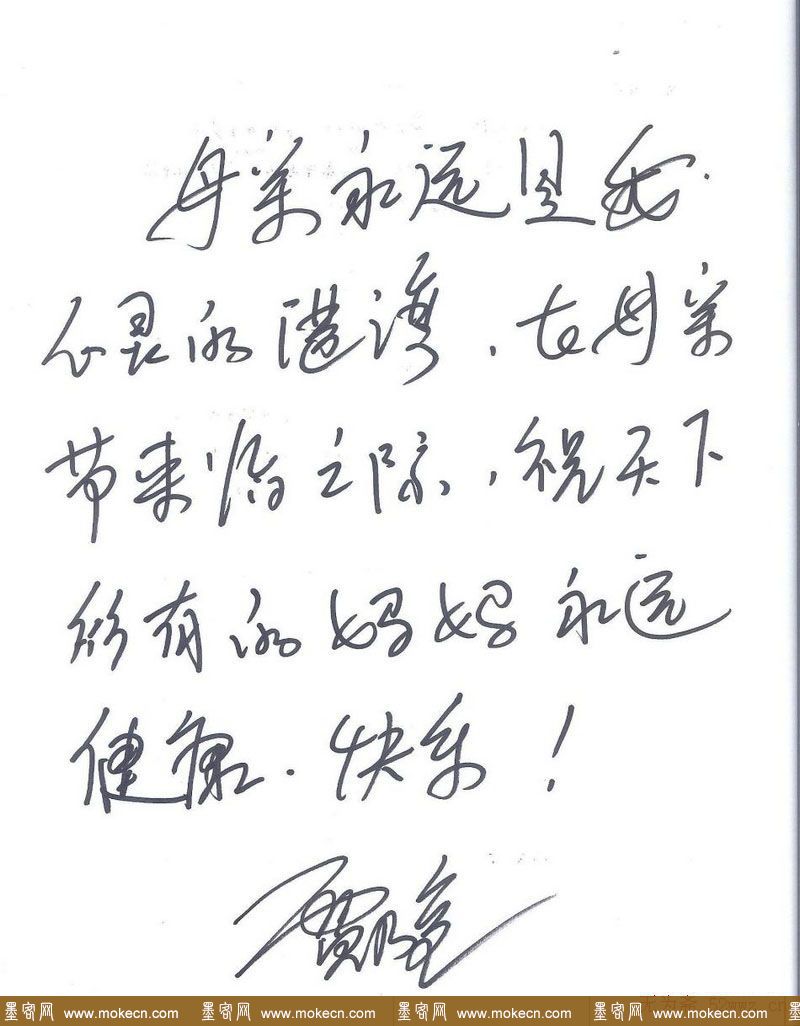 母亲永远是我
心灵的港湾，在母亲
节来临之际，祝天下
所有的妈妈永远
健康．快乐！
贾乃亮
墨客网 www.mokecn.com 墨客网 www.mokecn.com 墨客网 www.mokecn.com 墨客网 www.mokecn.com